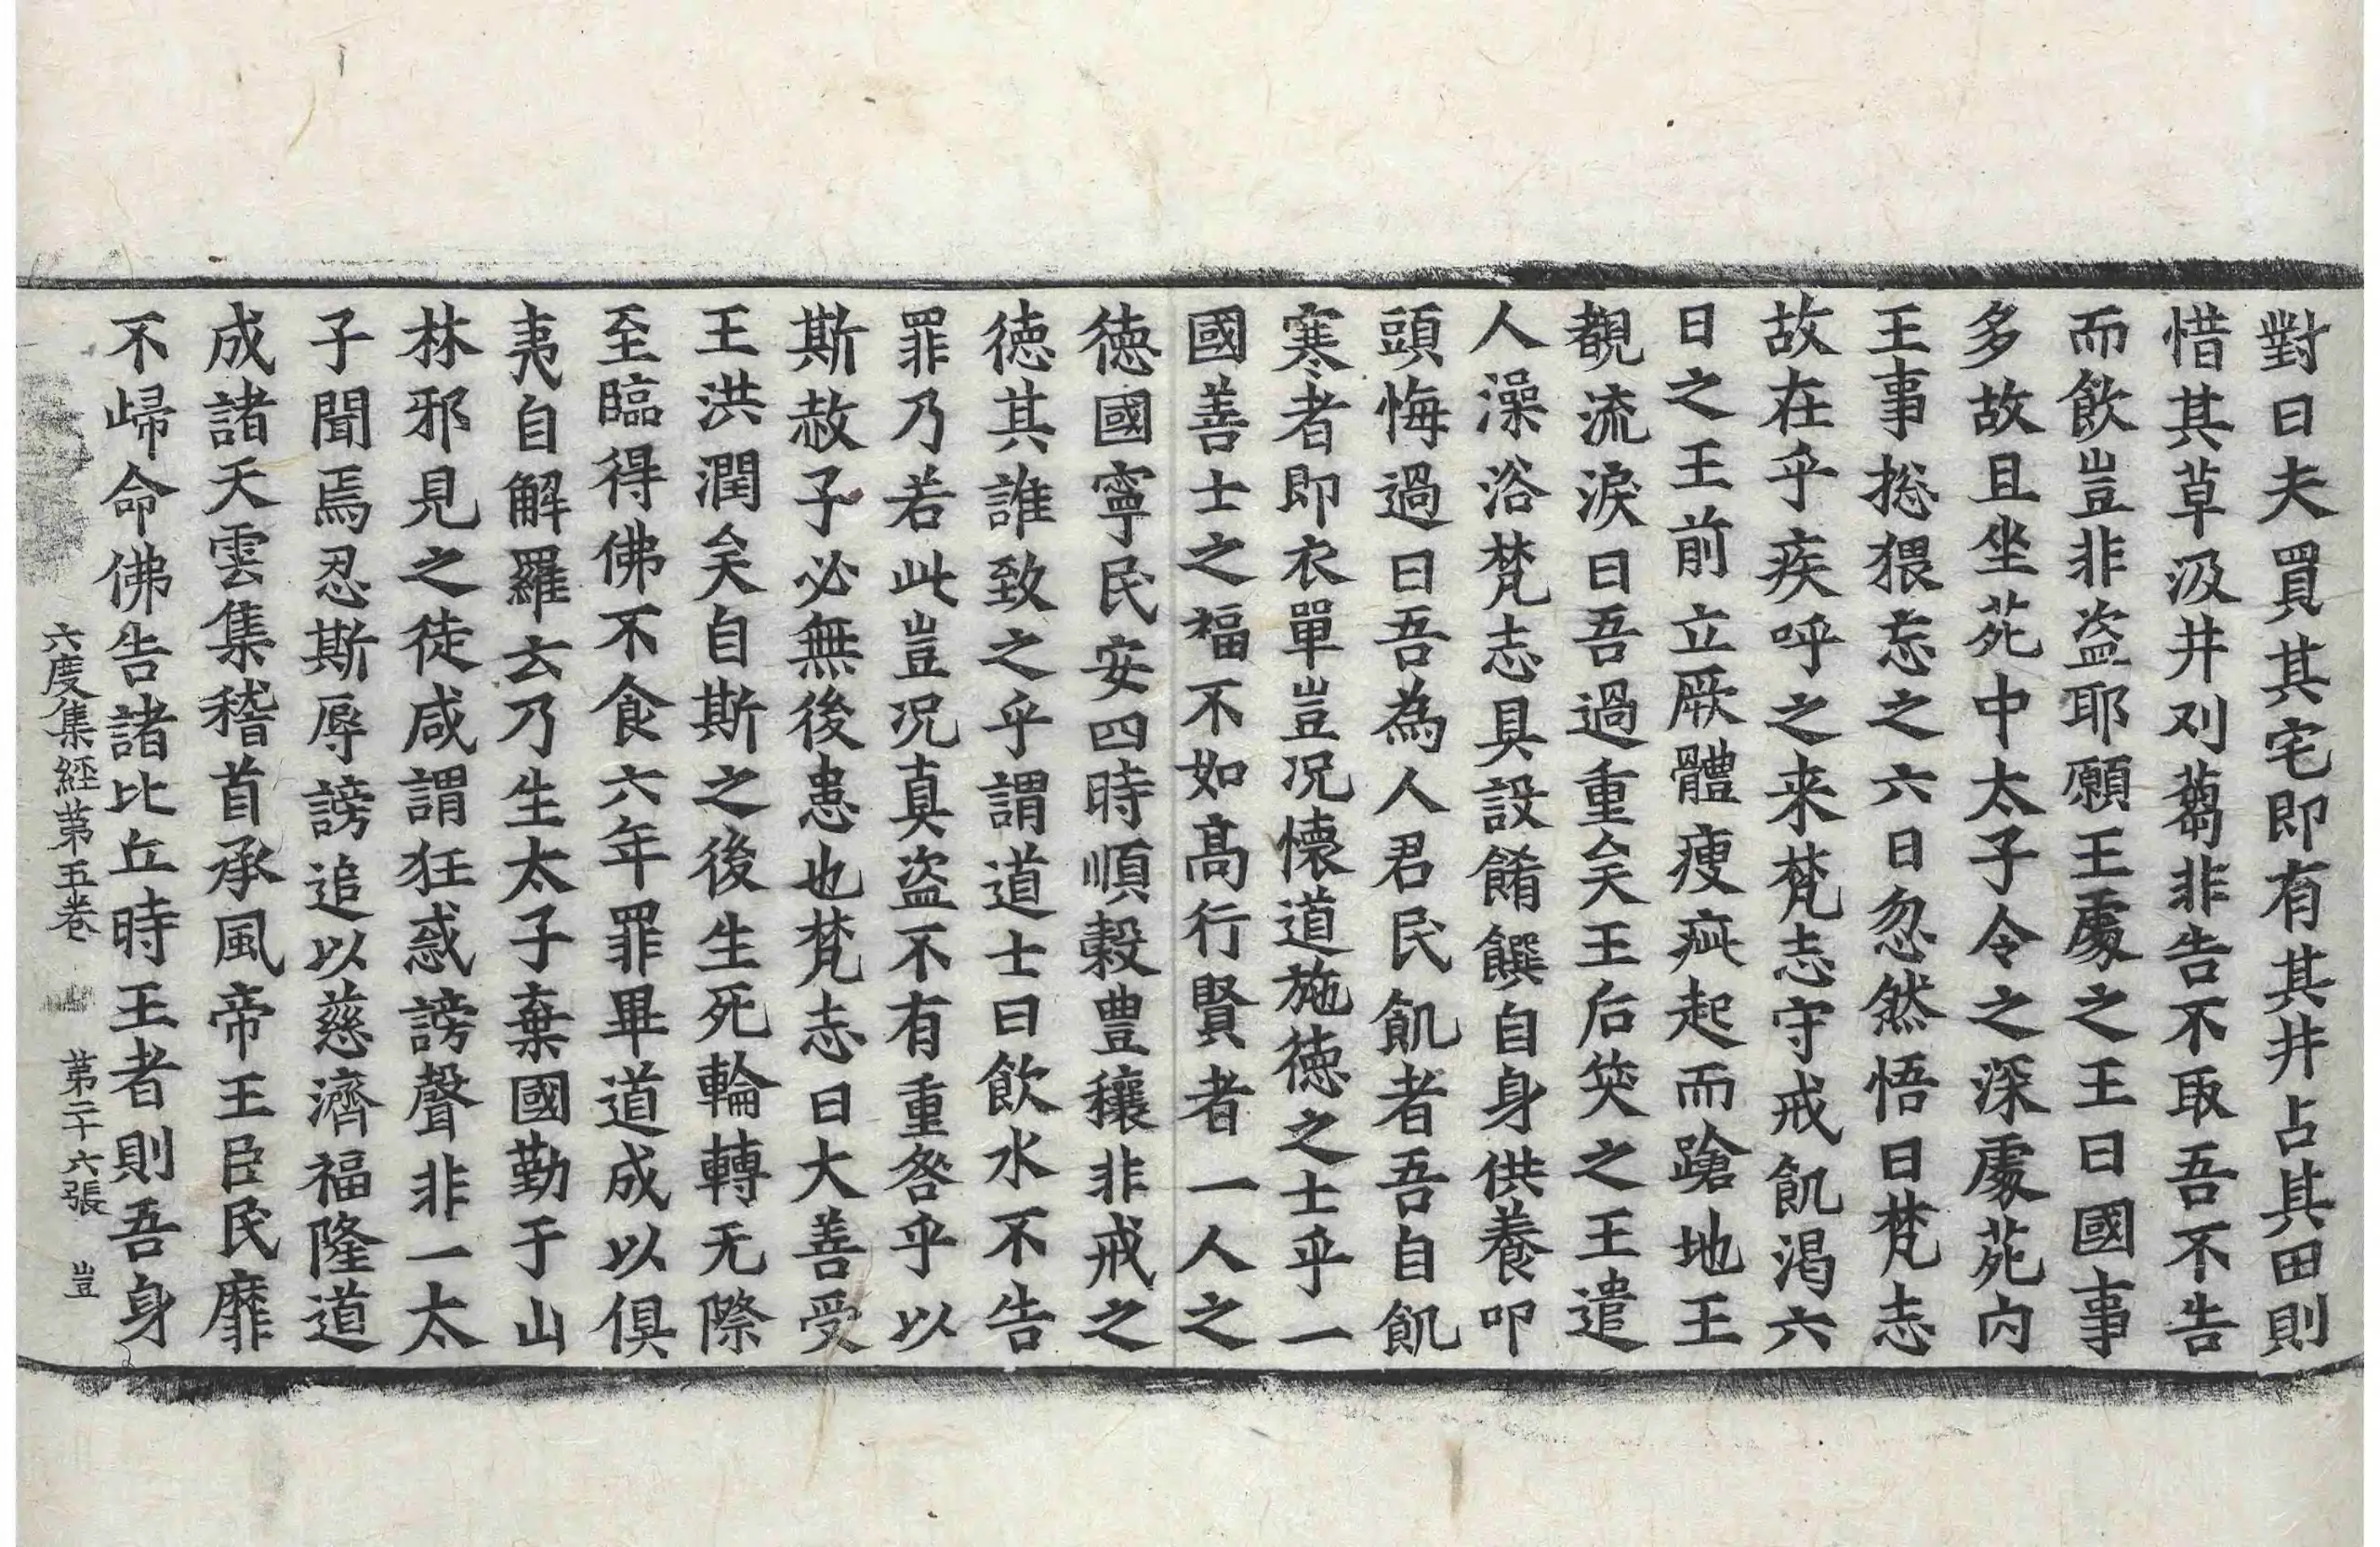 對曰夫買其宅即有其井占其田則
惜其草汲井刈蒭非告不取吾不告
而飲豈非盗耶願王處之王曰國事
多故且坐苑中太子令之深處苑内
王事揔猥忘之六日忽然悟曰梵志
故在乎疾呼之来梵志守戒飢渇六
日之王前立厥體瘦疵起而蹌地王
覩流淚曰吾過重矣王后笑之王遣
人澡浴梵志具設餚饌自身供養叩
頭悔過曰吾為人君民飢者吾自飢
寒者即衣單豈况懐道施徳之士乎一
國善士之福不如髙行賢者一人之
徳國寧民安四時順穀豊穰非戒之
徳其誰致之乎謂道士曰飲水不告
罪乃若此豈况真盗不有重咎乎以
斯赦子必無後患也梵志曰大善受
王洪潤矣自斯之後生死輪轉无際
至臨得佛不食六年罪畢道成以俱
夷自解羅云乃生太子棄國勤于山
林邪見之徒咸謂狂惑謗聲非一太
子聞焉忍斯辱謗追以慈濟福隆道
成諸天雲集稽首承風帝王臣民靡
不歸命佛告諸比丘時王者則吾身
六度集經苐五卷 苐二十六張 豈